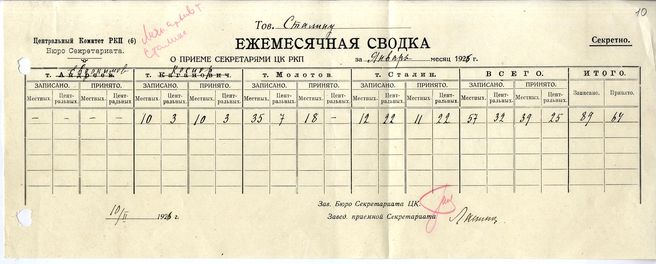 10
Тов. Сталину
Центральный Комитет РКП (б)
Бюро Секретариата.
Секретно.
ЕЖЕМЕСЯЧНАЯ СВОДКА
О ПРИЕМЕ СЕКРЕТАРЯМИ ЦК РКП за Январь месяц 1926 г.
т. Андреев. т. Каганович. т. Молотов. т. Сталин. ВСЕГО. ИТОГО.
ЗАПИСАНО. ПРИНЯТО. ЗАПИСАНО. ПРИНЯТО. ЗАПИСАНО. ПРИНЯТО. ЗАПИСАНО. ПРИНЯТО. ЗАПИСАНО. ПРИНЯТО. Записано. Принято.
Местных. Центральных. Местных. Центральных. Местных. Центральных. Местных. Центральных. Местных. Центральных. Местных. Центральных. Местных. Центральных. Местных. Центральных. Местных. Центральных. Местных. Центральных.
— — — — 10 3 10 3 35 7 18 — 12 22 11 22 57 32 39 25 89 64
Зав. Бюро Секретариата ЦК
10/II 1926 г.
Завед. приемной Секретариата